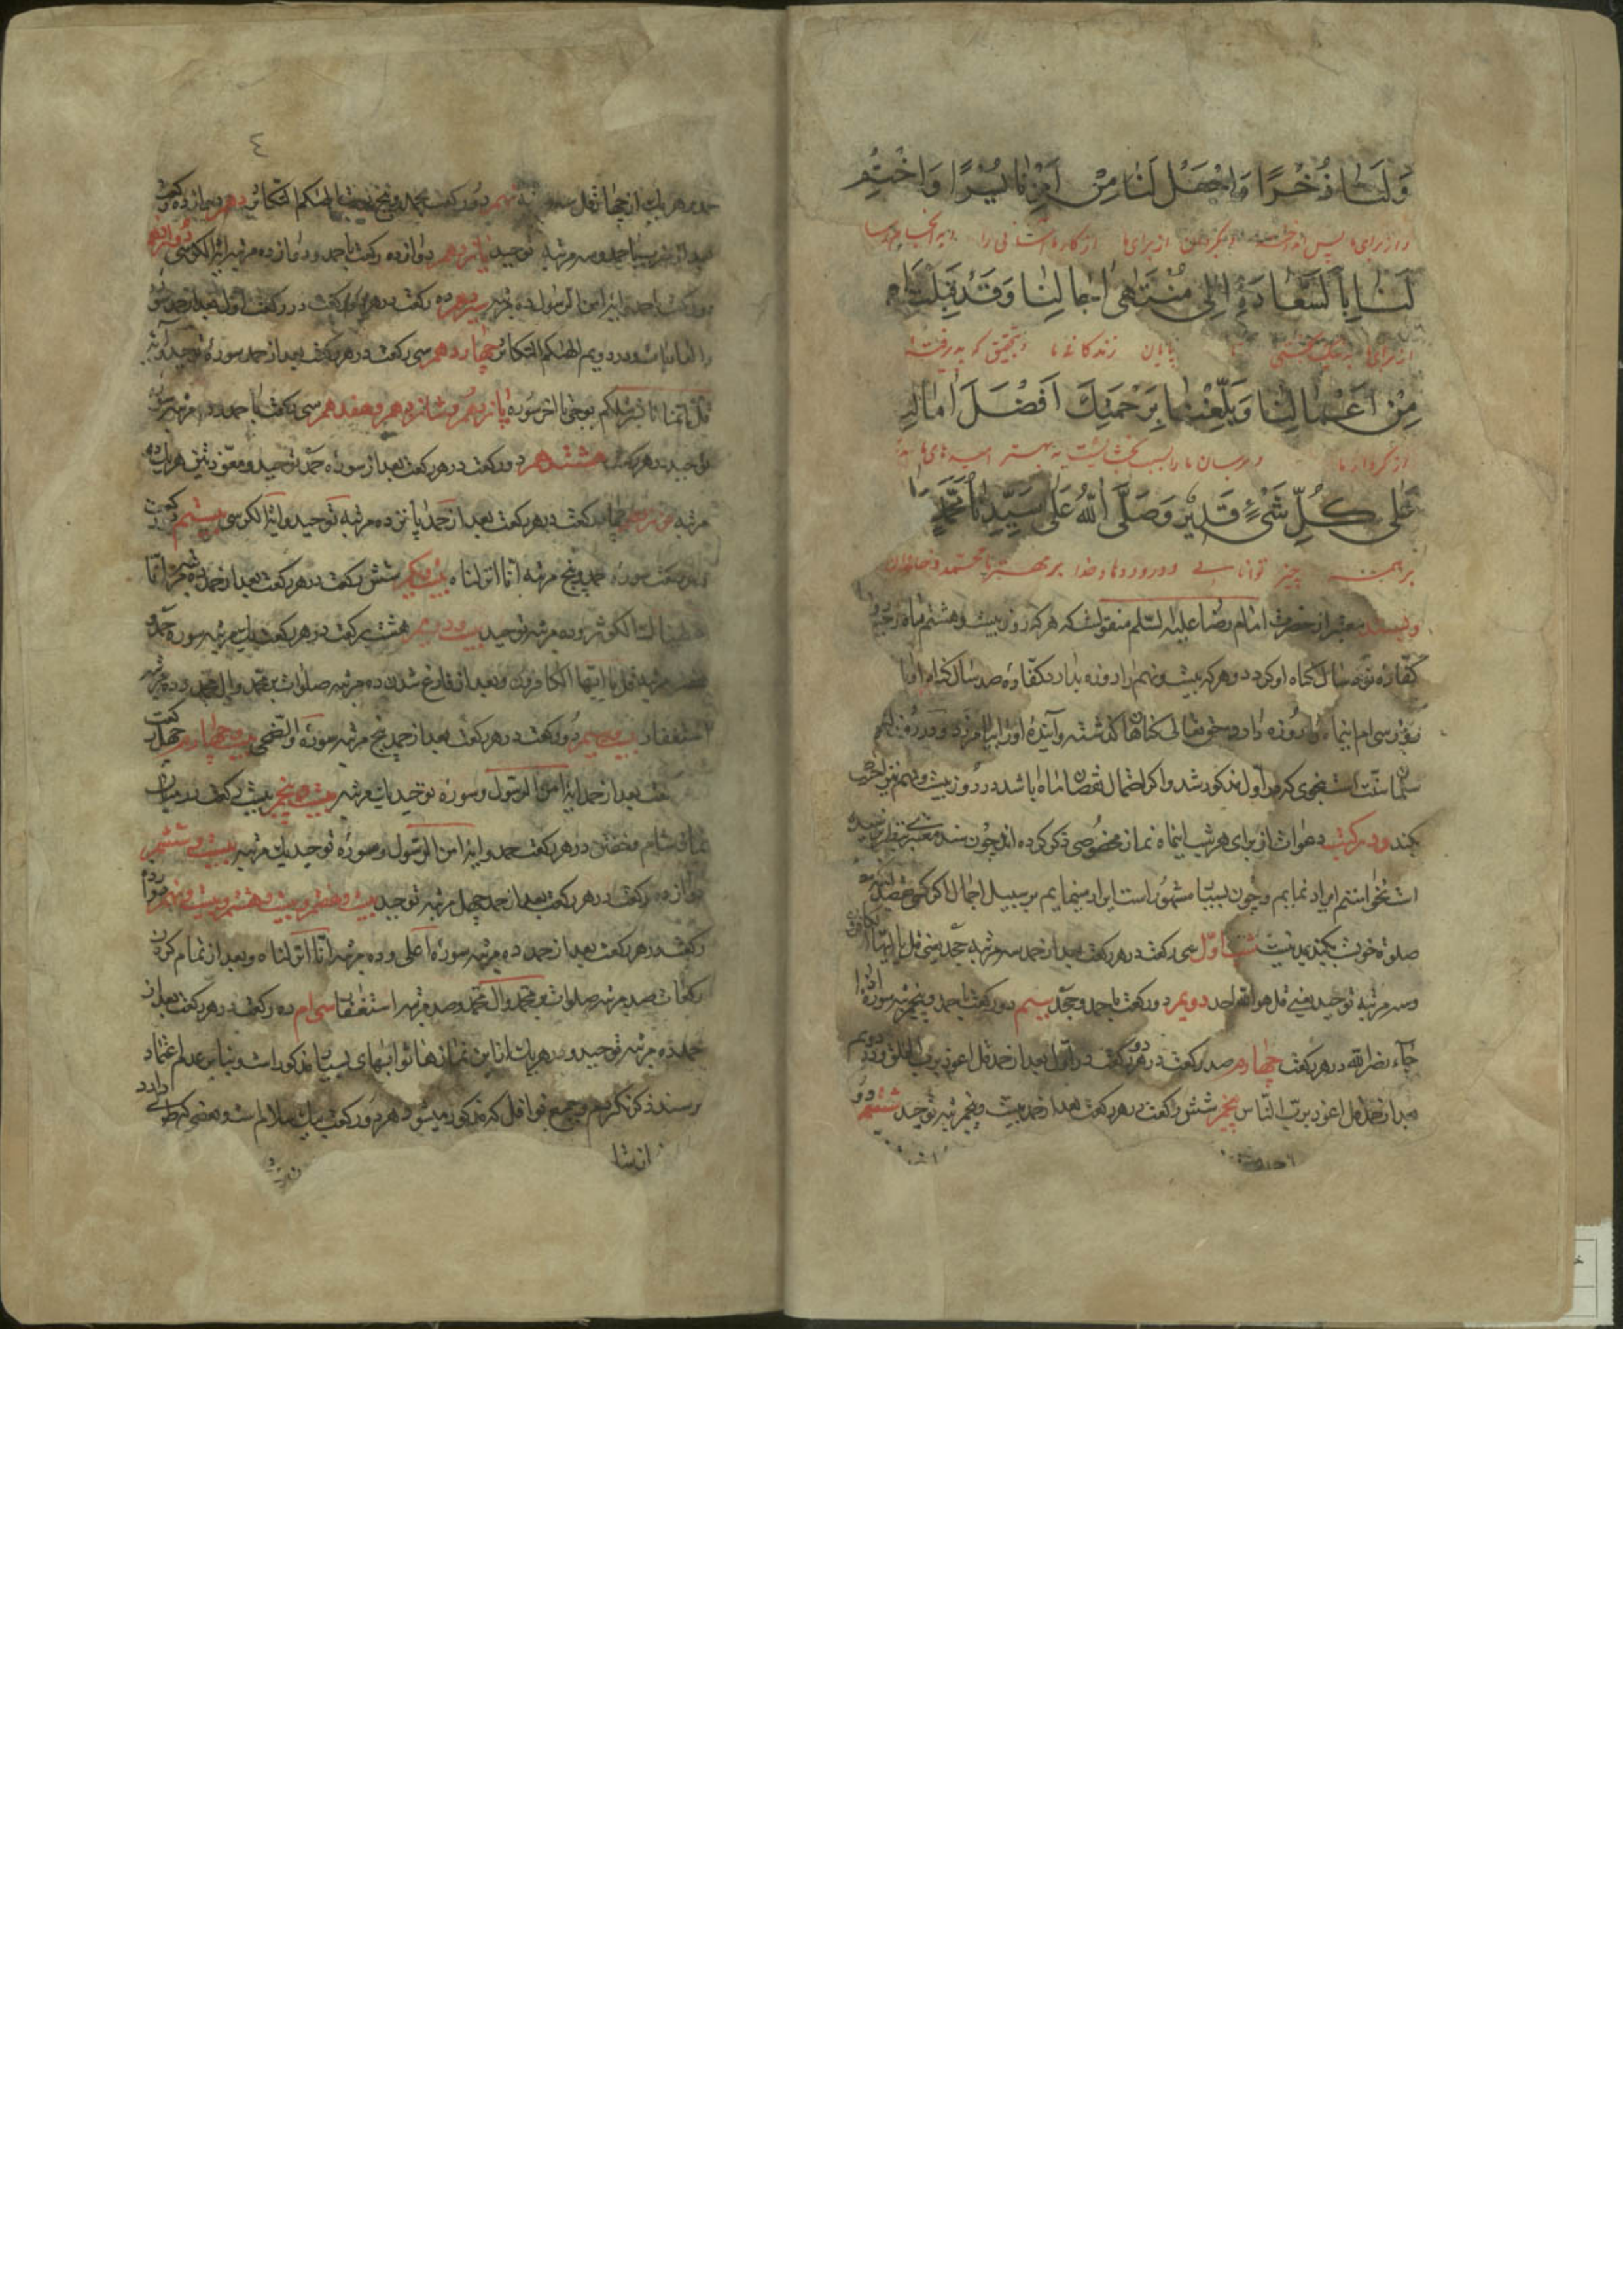 وَلَنَا ذُخْرًا وَاجْعَلْ لَنَا مِنْ اَمْرِنَا يُسْرًا وَاخْتِمْ
و از برای ما پس انداخته و بگردان از برای ما از کار ما آسانی را
لَنَا بِالسَّعَادَةِ اِلٰی مُنْتَهٰی اٰجَالِنَا وَقَدْ قَبِلْتَ
از برای ما به نیک بختی تا پایان زندگانی ما و بتحقیق که پذیرفته
مِنْ اَعْمَالِنَا وَبَلَّغْتَنَا بِرَحْمَتِكَ اَفْضَلَ اٰمَالِنَا
از کردار ما و برسان ما را بسبب بخشایشت به بهتر امیدهای ما
عَلٰی كُلِّ شَیْءٍ قَدِیْرٌ وَصَلَّی اللّٰهُ عَلٰی سَیِّدِنَا مُحَمَّدٍ
بر همه چیز توانایی و درود دهاد خدا بر مهتر ما محمد و خاندان
و بسند معتبر از حضرت امام رضا علیه السلم منقولست که هر که روز بیست و هشتم ماه رجب
کفاره نود سال گناه او گردد و هر که بیست و نهم را روزه بدارد کفاره صد سال گناه او
روز سی ام اینماه را روزه دارد حق تعالی گناهان گذشته و آینده او را بیامرزد و در روز
سلمان سنت است بنحوی که در اول مذکور شد و اگر احتمال نقصان ماه باشد در روز بیست و نهم نیز
بکند و در کتب دعوات از برای هر شب اینماه نماز مخصوصی ذکر کرده اند چون سند معتبری بنظر نرسیده
است نخواستم ایراد نمایم و چون بسیار مشهور است ایراد مینمایم بر سبیل اجمال اگر کسی
صلوة خوبست بکند بد نیست شب اول سی رکعت در هر رکعت بعد از حمد سه مرتبه جحد یعنی قل یا ایها الکافرون
و سه مرتبه توحید یعنی قل هو الله احد دویم دو رکعت با حمد و جحد سیم دو رکعت با حمد و پنج مرتبه سوره اذا
جاء نصر الله در هر رکعت چهارم صد رکعت در هر دو رکعت در اول بعد از حمد قل اعوذ برب الفلق و در دویم
بعد از حمد قل اعوذ برب الناس پنجم شش رکعت در هر رکعت بعد از حمد بیست و پنج مرتبه توحید ششم دو
٤
حمد و هر یک از چهار قل سه مرتبه نهم دو رکعت بحمد و پنج الهیکم التکاثر دهم دوازده رکعت
بعد از مغرب با حمد و سه مرتبه توحید یازدهم دوازده رکعت با حمد و دوازده مرتبه آیة الکرسی دوازدهم
دو رکعت با حمد و آیه امن الرسول ده مرتبه سیزدهم ده رکعت در هر دو رکعت در رکعت اول بعد از حمد سوره
و العادیات و در دویم الهیکم التکاثر چهاردهم سی رکعت در هر رکعت بعد از حمد سوره توحید و آیه
قل انما انا بشر مثلکم یوحی تا آخر سوره پانزدهم و شانزدهم و هفدهم سی رکعت با حمد و ده مرتبه
توحید در هر رکعت هشتدهم دو رکعت در هر رکعت بعد از سوره حمد توحید و معوذتین هر یک ده
مرتبه نوزدهم چهار رکعت در هر رکعت بعد از حمد پانزده مرتبه توحید و آیة الکرسی بیستم
حمد و پنج مرتبه انا انزلناه بیست و یکم شش رکعت در هر رکعت بعد از حمد ده مرتبه انا
اعطیناک الکوثر و ده مرتبه توحید بیست و دویم هشت رکعت در هر رکعت یک مرتبه سوره حمد و
هفت مرتبه قل یا ایها الکافرون و بعد از فارغ شدن ده مرتبه صلوات بر محمد و آل محمد و ده مرتبه
استغفار بیست و سیم دو رکعت در هر رکعت بعد از حمد پنج مرتبه سوره والضحی بیست و چهارم چهل رکعت
بعد از حمد آیه امن الرسول و سوره توحید یک مرتبه بیست و پنجم بیست رکعت در میان
نماز شام و خفتن در هر رکعت حمد و آیه امن الرسول و سوره توحید یک مرتبه بیست و ششم
دوازده رکعت در هر رکعت بعد از حمد چهل مرتبه توحید بیست و هفتم و بیست و هشتم و بیست و نهم دوازده
رکعت در هر رکعت بعد از حمد ده مرتبه سوره اعلی و ده مرتبه انا انزلناه و بعد از تمام کردن
رکعات صد مرتبه صلوات بر محمد و آل محمد و صد مرتبه استغفار سی ام ده رکعت در هر رکعت بعد از
حمد ده مرتبه توحید و بر هر یک از این نمازها ثوابهای بسیار مذکور است و بنا بر عدم اعتماد
بر سند ذکر نکردیم و جمیع نوافل که مذکور میشود هر دو رکعت بیک سلام است و بعضی که
انشا